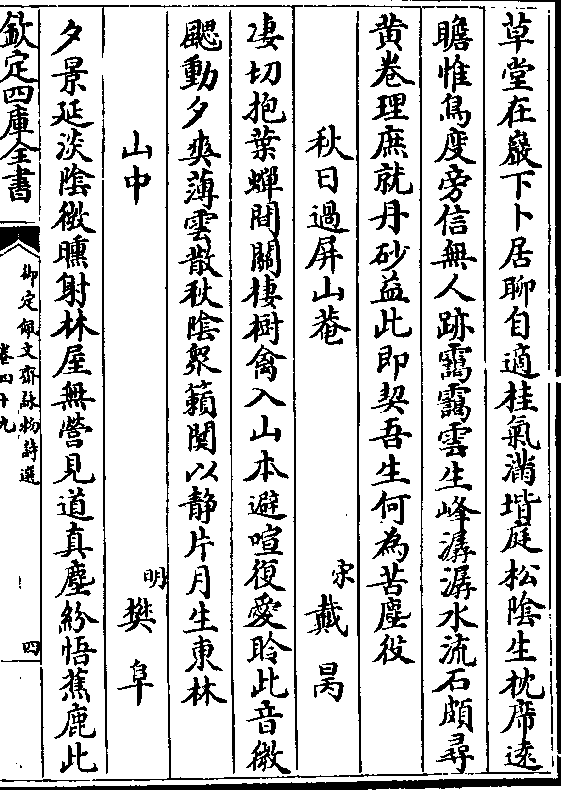 草堂在巖下卜居聊自適桂氣滿堦庭松陰生枕席遠
瞻惟鳥度旁信無人跡靄靄雲生峰潺潺水流石頗尋
黄卷理庶就丹砂益此即契吾生何為苦塵役
秋日過屏山菴
宋
戴昺
凄切抱葉蟬間關棲樹禽入山本避喧復愛聆此音微
颸動夕爽薄雲散秋陰衆籟闃以静片月生東林
山中
明
樊阜
夕景延淡陰微曛射林屋無營見道真塵紛悟蕉鹿此
欽定四庫全書
御定佩文齋詠物詩選
卷四十九
四